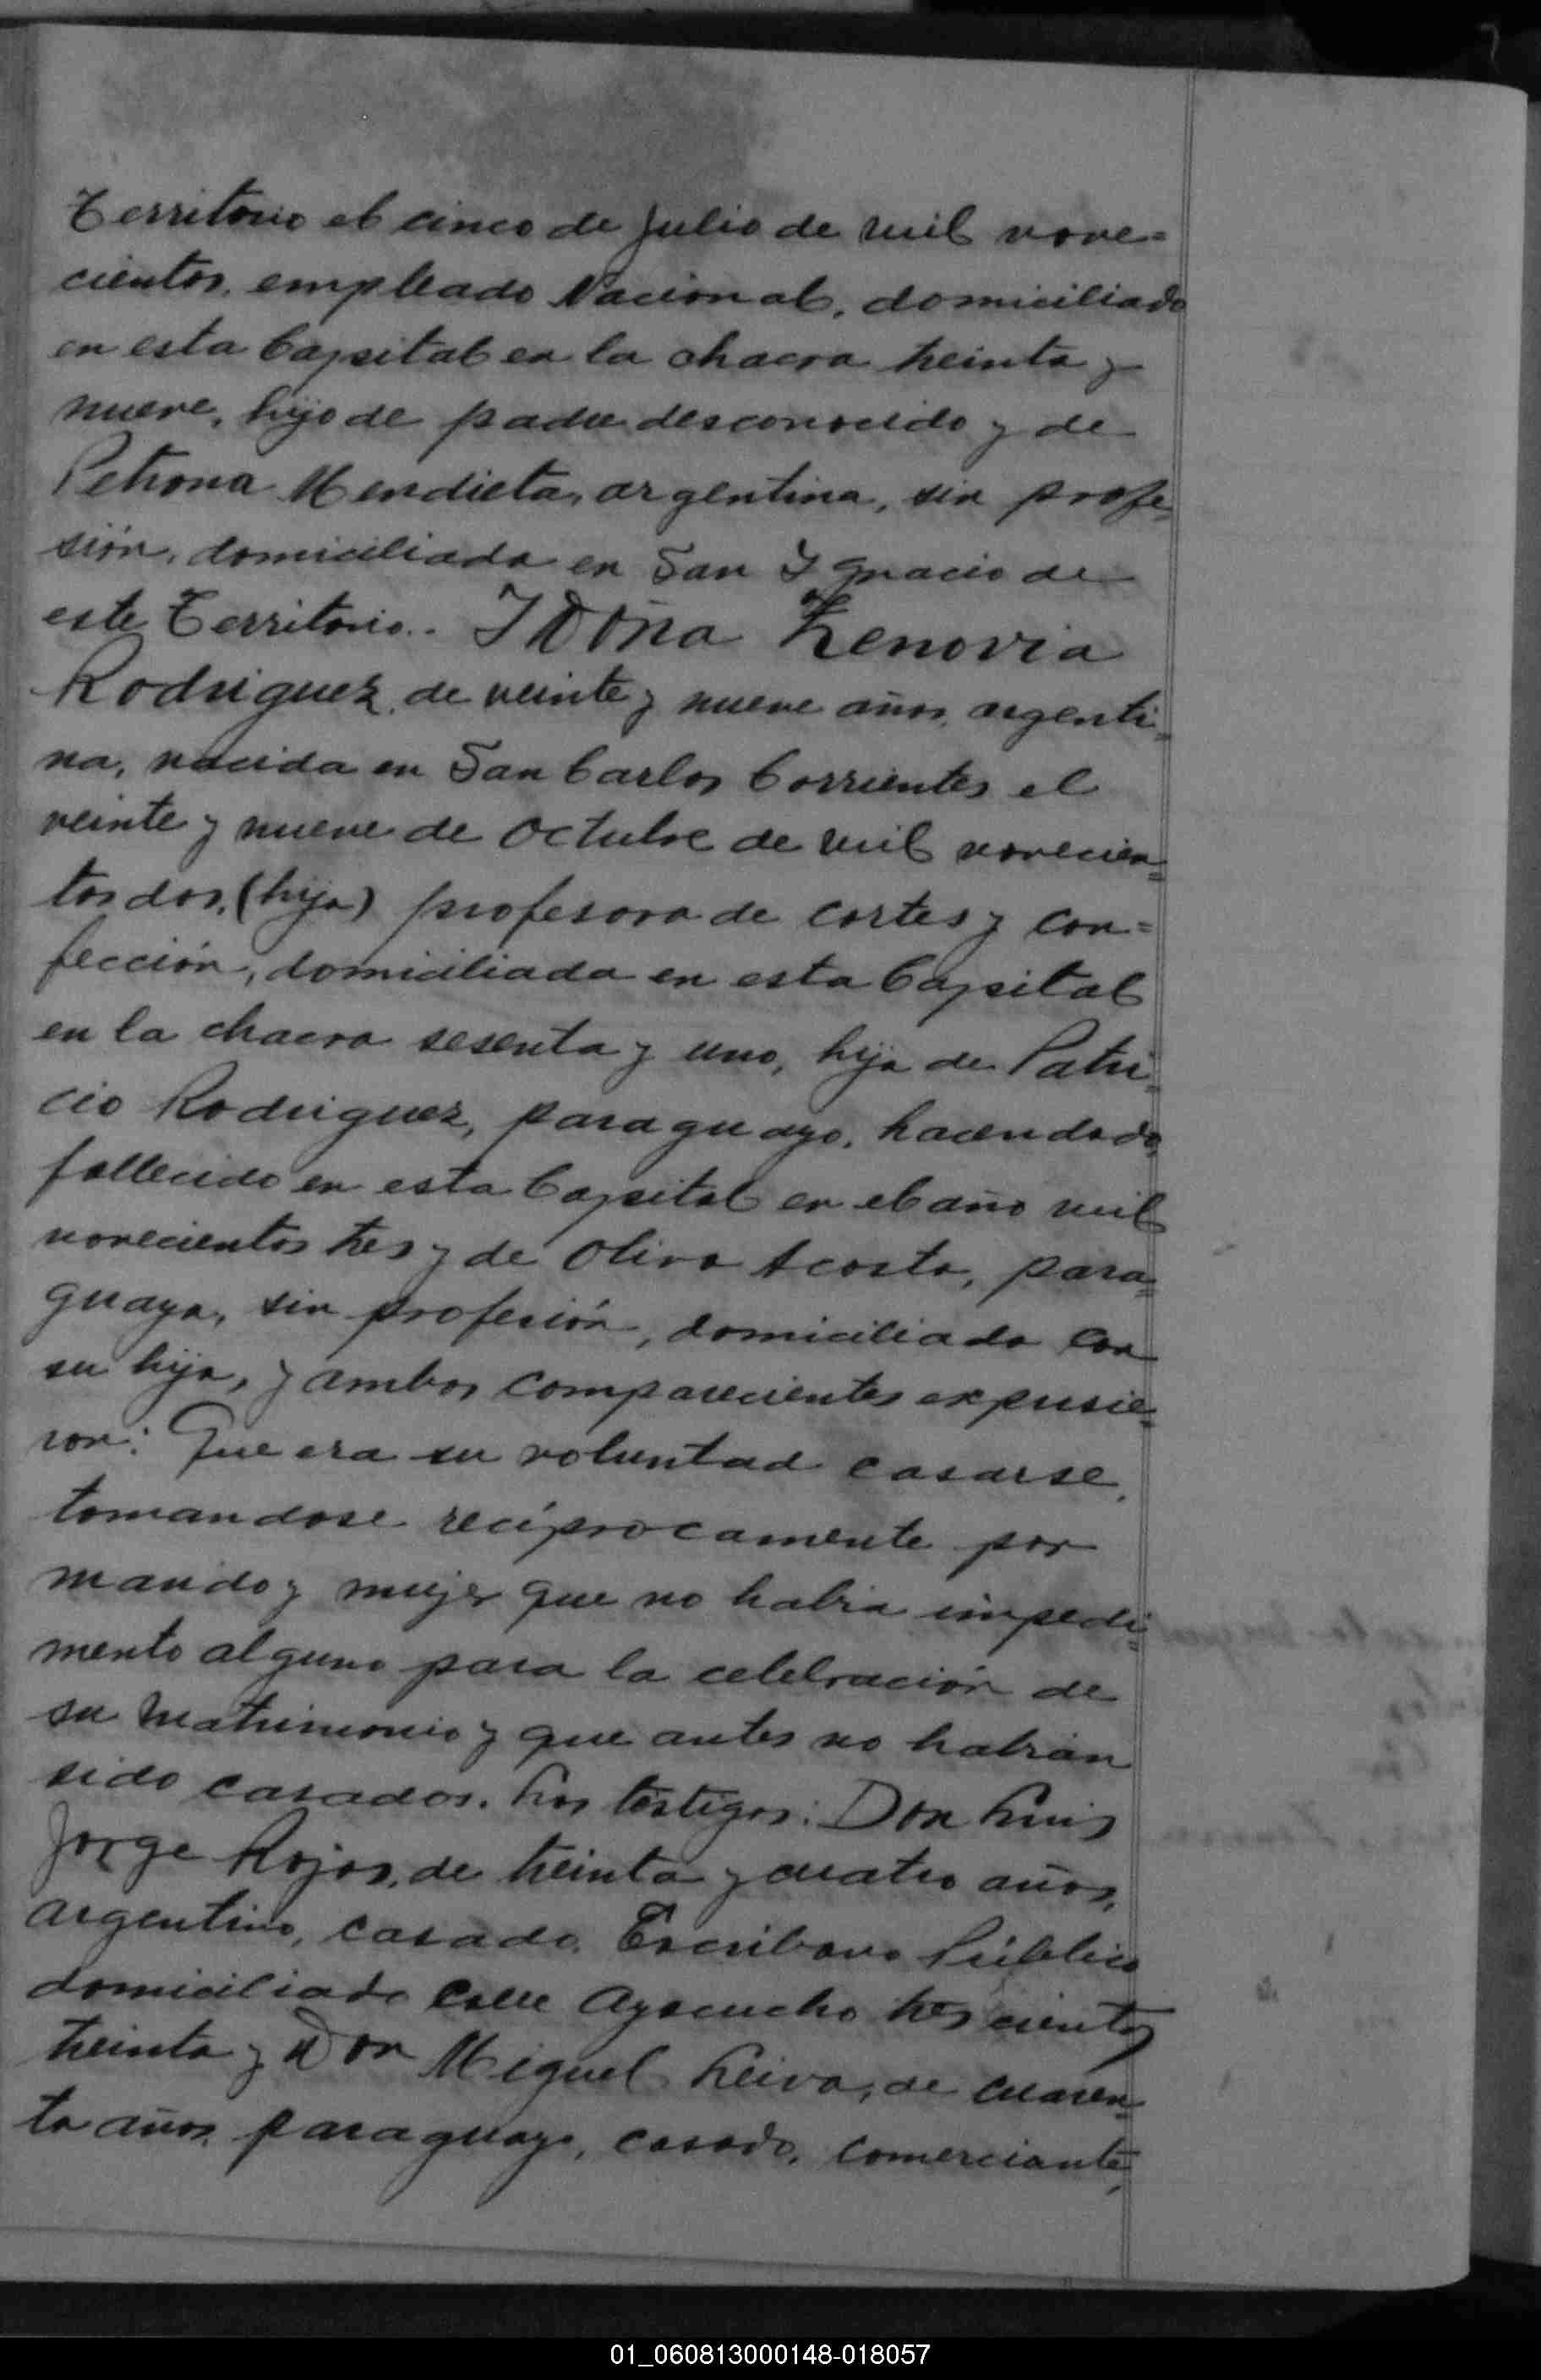 Territorio el cinco de Julio de mil nove=
cientos, empleado Nacional, domiciliado
en esta Capital en la chacra treinta y
nueve, hijo de padre desconocido y de
Petrona Mendieta, argentina, sin profe=
sión, domiciliada en San Ignacio de
este Territorio.. Y Doña Zenovia
Rodriguez, de veinte y nueve años, argenti=
na, nacida en San Carlos Corrientes el
veinte y nueve de Octubre de mil novecien=
tos dos, (hija) profesora de cortes y con=
fección, domiciliada en esta Capital
en la chacra sesenta y uno, hija de Patri=
cio Rodriguez, paraguayo, hacendado,
fallecido en esta Capital en el año mil
novecientos tres y de Oliva Acosta, para=
guaya, sin profesión, domiciliada con
su hija, y ambos comparecientes expusie=
ron: Que era su voluntad casarse,
tomandose recíprocamente por
marido y mujer que no habia impedi=
mento alguno para la celebración de
su matrimonio y que antes no habian
sido casados. Los testigos: Don Luis
Jorge Rojas, de treinta y cuatro años,
argentino, casado, Escribano Público
domiciliado calle Ayacucho trescientos
treinta y Don Miguel Leiva, de cuaren=
ta años, paraguayo, casado, comerciante,
01_060813000148-018057